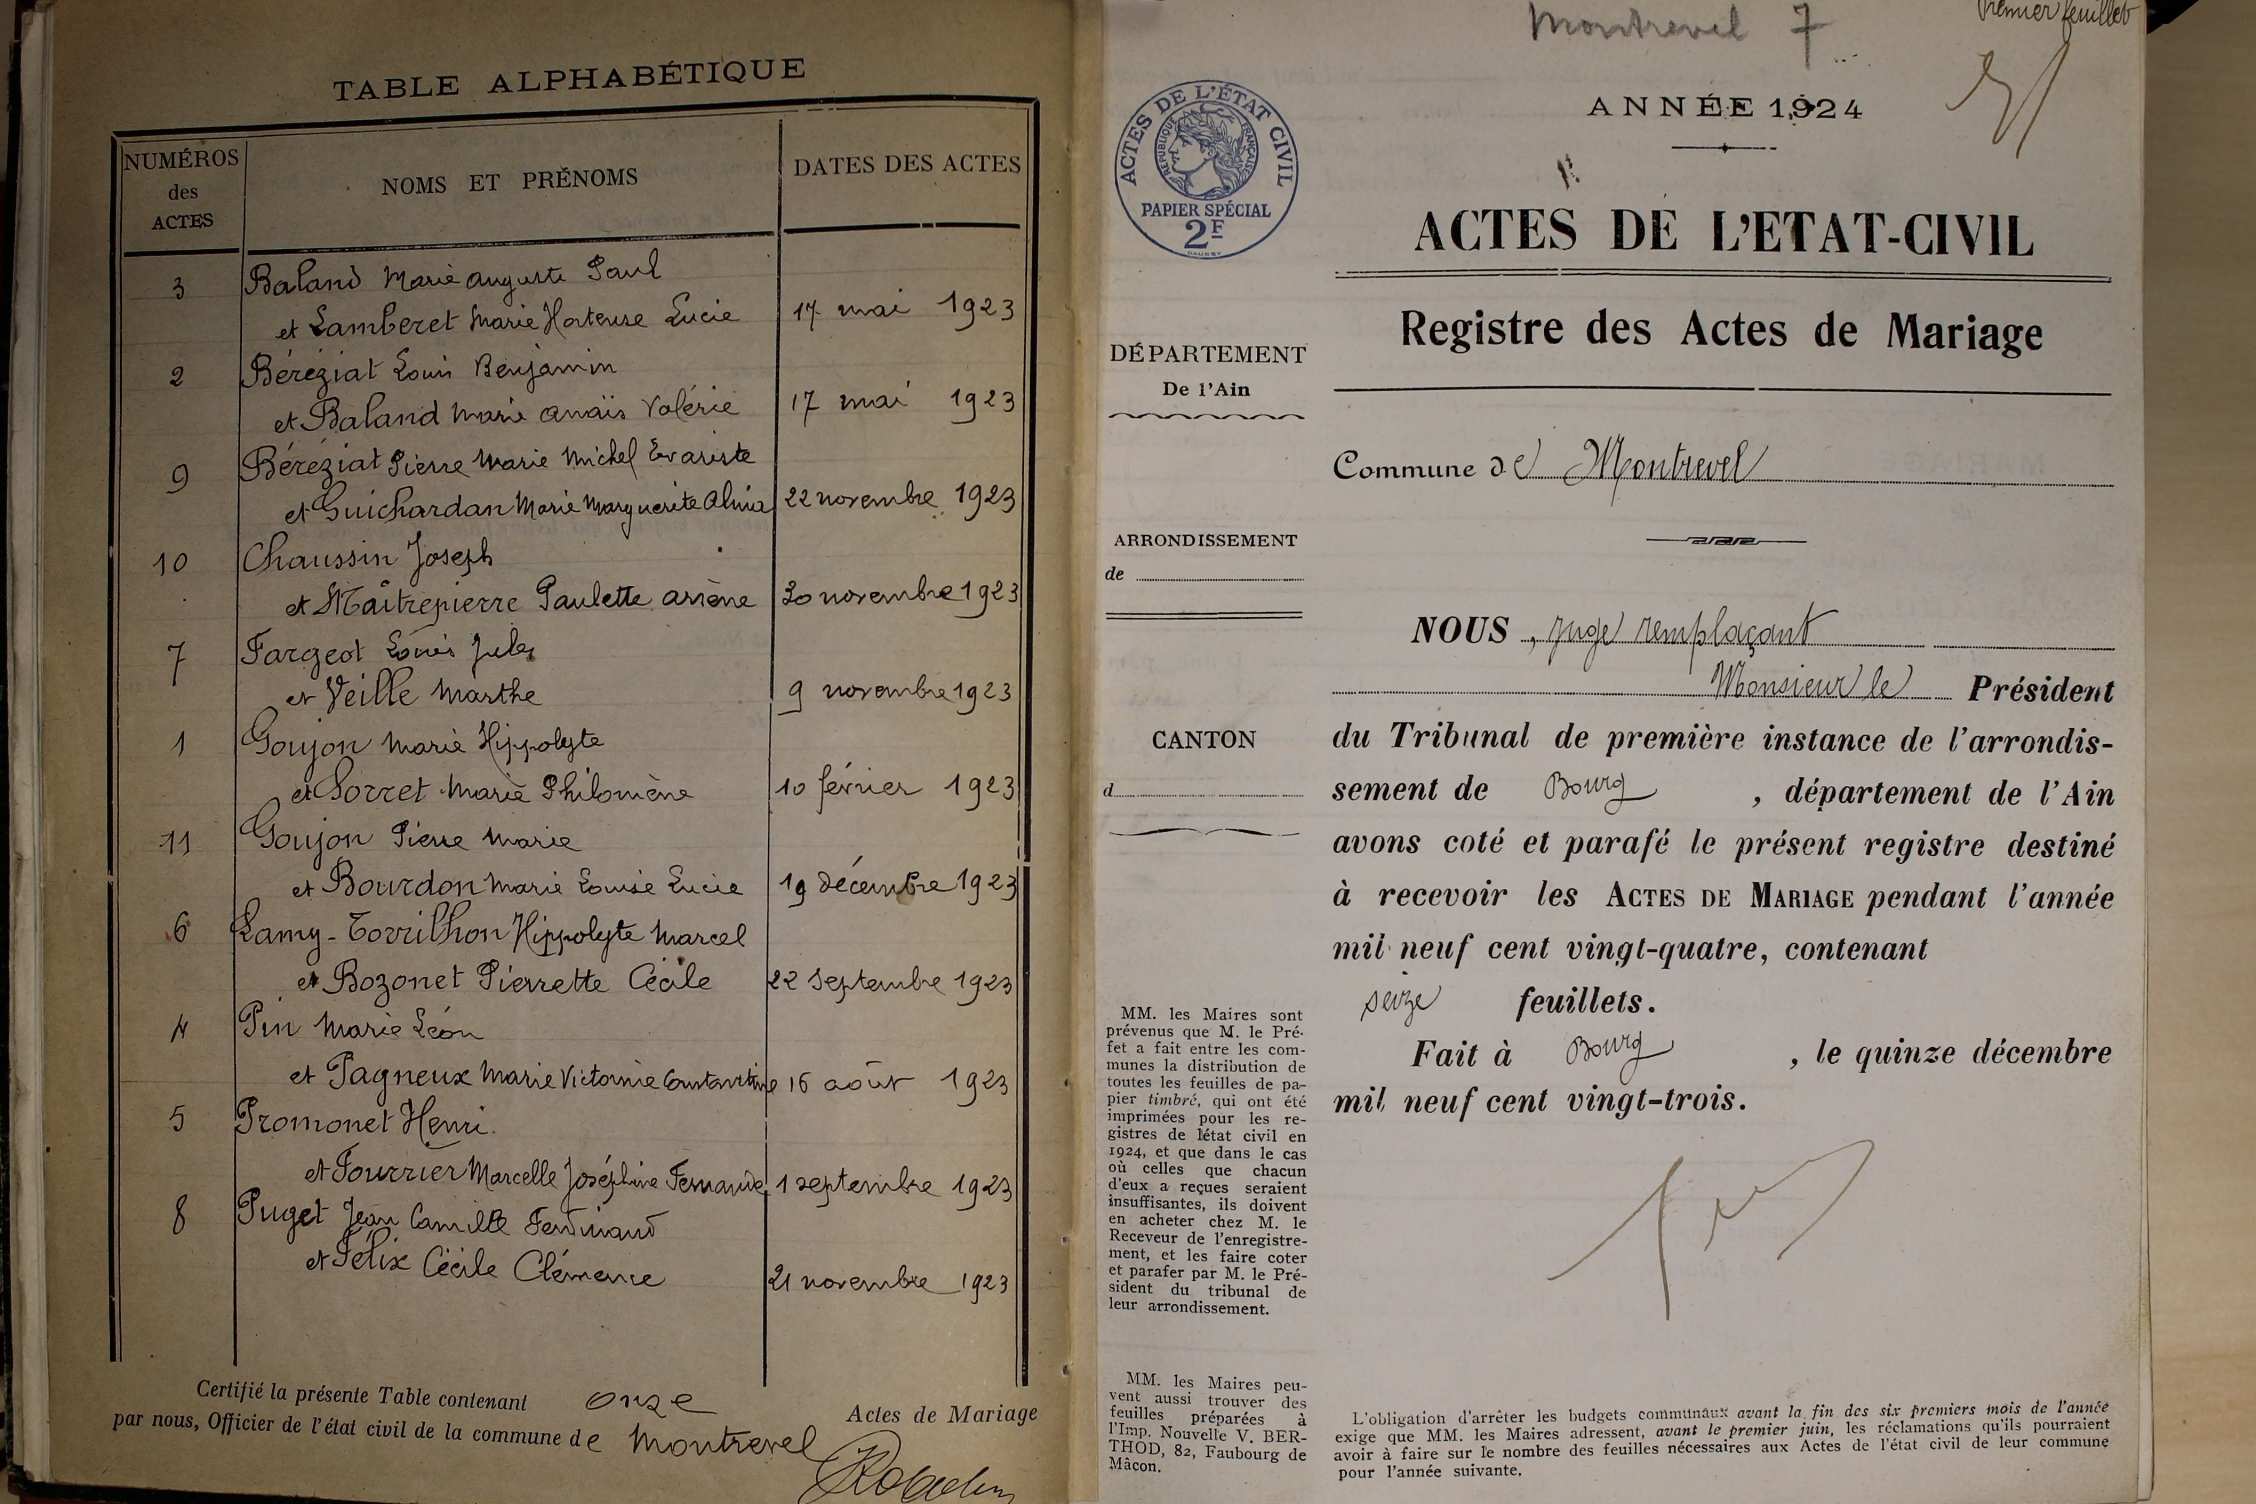 TABLE ALPHABÉTIQUE
NUMÉROS des ACTES
NOMS ET PRÉNOMS
DATES DES ACTES
3 Baland Marie Auguste Paul
et Lamberet Marie Hortense Lucie 17 mai 1923
2 Béréziat Louis Benjamin
et Baland Marie Anaïs Valérie 17 mai 1923
9 Béréziat Pierre Marie Michel Evariste
et Guichardan Marie Marguerite Alma 22 novembre 1923
10 Chaussin Joseph
et Maîtrepierre Paulette Arsène 30 novembre 1923
7 Fargeot Louis Jules
et Veille Marthe 9 novembre 1923
1 Goujon Marie Hippolyte
et Sorret Marie Philomène 10 février 1923
11 Goujon Pierre Marie
et Bourdon Marie Louise Lucie 19 décembre 1923
6 Lamy-Tovrilhon Hippolyte Marcel
et Bozonet Pierrette Cécile 22 septembre 1923
4 Pin Marie Léon
et Pagneux Marie Victorine Constantine 16 août 1923
5 Promonet Henri
et Fourrier Marcelle Joséphine Fernande 1 septembre 1923
8 Puget Jean Camille Ferdinand
et Félix Cécile Clémence 21 novembre 1923
Certifié la présente Table contenant onze Actes de Mariage
par nous, Officier de l'état civil de la commune de Montrevel
Montrevel 7
Premier feuillet
ACTES DE L'ÉTAT CIVIL
RÉPUBLIQUE FRANÇAISE
PAPIER SPÉCIAL
2F
ANNÉE 1924
ACTES DE L'ETAT-CIVIL
Registre des Actes de Mariage
DÉPARTEMENT
De l'Ain
Commune de Montrevel
ARRONDISSEMENT
de
CANTON
d
NOUS, juge remplaçant
Monsieur le Président
du Tribunal de première instance de l'arrondis-
sement de Bourg, département de l'Ain
avons coté et parafé le présent registre destiné
à recevoir les ACTES DE MARIAGE pendant l'année
mil neuf cent vingt-quatre, contenant
seize feuillets.
Fait à Bourg, le quinze décembre
mil neuf cent vingt-trois.
MM. les Maires sont
prévenus que M. le Pré-
fet a fait entre les com-
munes la distribution de
toutes les feuilles de pa-
pier timbré, qui ont été
imprimées pour les re-
gistres de l'état civil en
1924, et que dans le cas
où celles que chacun
d'eux a reçues seraient
insuffisantes, ils doivent
en acheter chez M. le
Receveur de l'enregistre-
ment, et les faire coter
et parafer par M. le Pré-
sident du tribunal de
leur arrondissement.
MM. les Maires peu-
vent aussi trouver des
feuilles préparées à
l'Imp. Nouvelle V. BER-
THOD, 82, Faubourg de
Mâcon.
L'obligation d'arrêter les budgets communaux avant la fin des six premiers mois de l'année
exige que MM. les Maires adressent, avant le premier juin, les réclamations qu'ils pourraient
avoir à faire sur le nombre des feuilles nécessaires aux Actes de l'état civil de leur commune
pour l'année suivante.